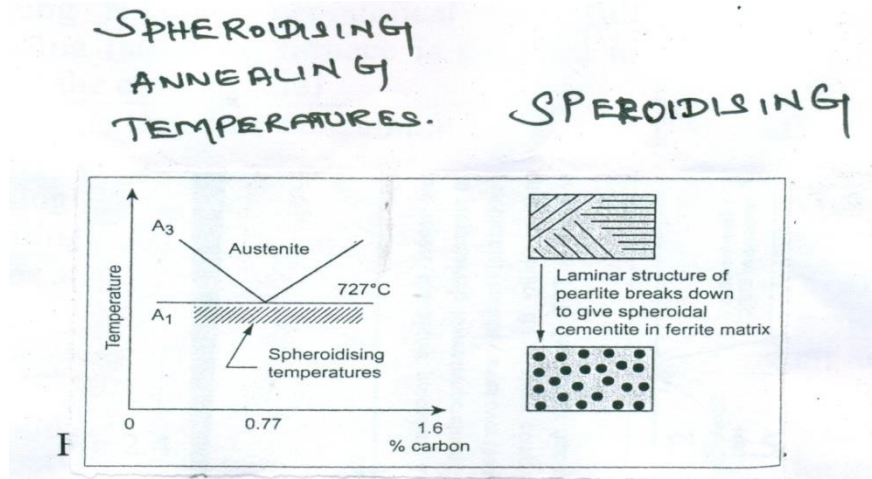 SPHEROIDISING
ANNEALING
TEMPERATURES.
SPEROIDISING
A3
Austenite
727°C
A1
Temperature
Spheroidising
temperatures
0
0.77
1.6
% carbon
Laminar structure of
pearlite breaks down
to give spheroidal
cementite in ferrite matrix
F